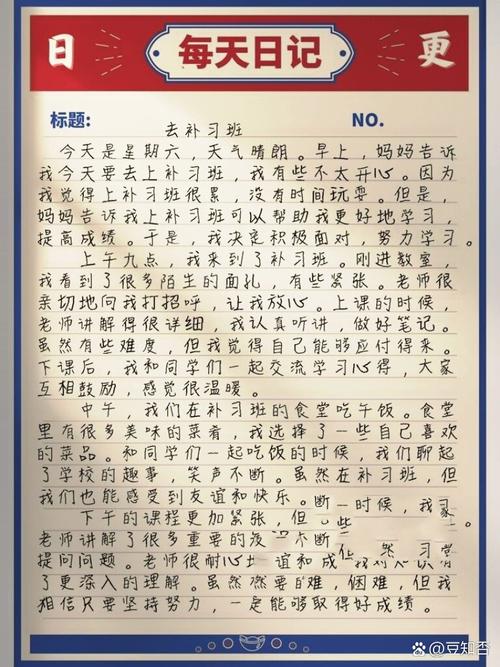 日 每天日记 更
标题: NO.
去补习班
今天是星期六，天气晴朗。早上，妈妈告诉
我今天要去上补习班，我有些不太开心。因为
我觉得上补习班很累，没有时间玩耍。但是，
妈妈告诉我上补习班可以帮助我更好地学习，
提高成绩。于是，我决定积极面对，努力学习。
上午九点，我来到了补习班。刚进教室，
我看到了很多陌生的面孔，有些紧张。老师很
亲切地向我打招呼，让我放心。上课的时候，
老师讲解得很详细，我认真听讲，做好笔记。
虽然有些难度，但我觉得自己能够应付得来。
下课后，我和同学们一起交流学习心得，大家
互相鼓励，感觉很温暖。
中午，我们在补习班的食堂吃午饭。食堂
里有很多美味的菜肴，我选择了一些自己喜欢
的菜品。和同学们一起吃饭的时候，我们聊起
了学校的趣事，笑声不断。虽然在补习班，但
我们也能感受到友谊和快乐。断一时候，我
下午的课程更加紧张，但 些
老师讲解了很多重要的 不断
然 习
提问问题。老师很耐心 谊和成
了更深入的理解。虽然 要的难，困难，但我
相信只要坚持努力，一定能够取得好成绩。
@豆知否